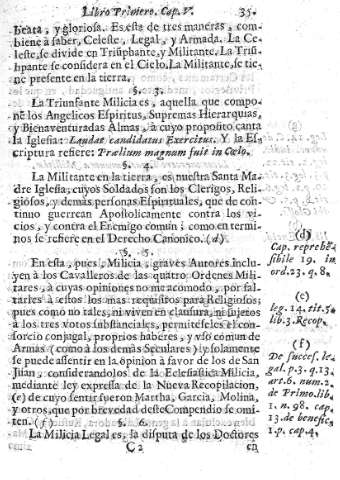 Libro Primero. Cap. V. 35.
beata, y gloriosa. Es esta de tres maneras, com-
biene à saber, Celeste, Legal, y Armada. La Ce-
leste, se divide en Triũphante, y Militante. La Triũ-
hpante se considera en el Cielo, La Militante, se tie-
ne presente en la tierra.
§. 3.
La Triunfante Milicia es, aquella que compo-
ne los Angelicos Espiritus, Supremas Hierarquias,
y Bienaventuradas Almas, à cuyo proposito canta
la Iglesia: Laudat candidatus Exercitus. Y la Es-
criptura refiere: Prælium magnum fuit in Cœlo.
§. 4.
La Militante en la tierra, es nuestra Santa Ma-
dre Iglesia, cuyos Soldados son los Clerigos, Reli-
giosos, y demàs personas Espirituales, que de con-
tinuo guerrean Apostolicamente contra los vi-
cios, y contra el Enemigo comun; como en termi-
nos se refiere en el Derecho Canonico. (d)
§. 5.
En esta, pues, Milicia, graves Autores inclu-
yen à los Cavalleros de las quatro Ordenes Mili-
tares, à cuyas opiniones no me acomodo, por fal-
tarles à estos los mas requisitos para Religiosos;
pues como no tales, ni viven en clausura, ni sujetos
à los tres votos substanciales, permiteseles el con-
sorcio conjugal, proprios haberes, y vso comun de
Armas (como à los demàs Seculares) y solamente
se puede assentir en la opinion à favor de los de San
Juan, considerandolos de la Eclesiastica Milicia,
mediante ley expressa de la Nueva Recopilacion,
(e) de cuyo sentir fueron Martha, Garcia, Molina,
y otros, que por brevedad deste Compendio se omi-
ten. (f) §. 6.
La Milicia Legal es, la disputa de los Doctores
C 2 en
(d)
Cap. reprehẽ-
sibile 19. in
ord. 23. q. 8.
(e)
leg. 14. tit. 5.
lib. 3. Recop.
(f)
De succes. le-
gal. p. 3. q. 13.
art. 6. num. 2.
de Primo. lib.
1. n. 98. cap.
13. de benefic
1. p. cap. 4.